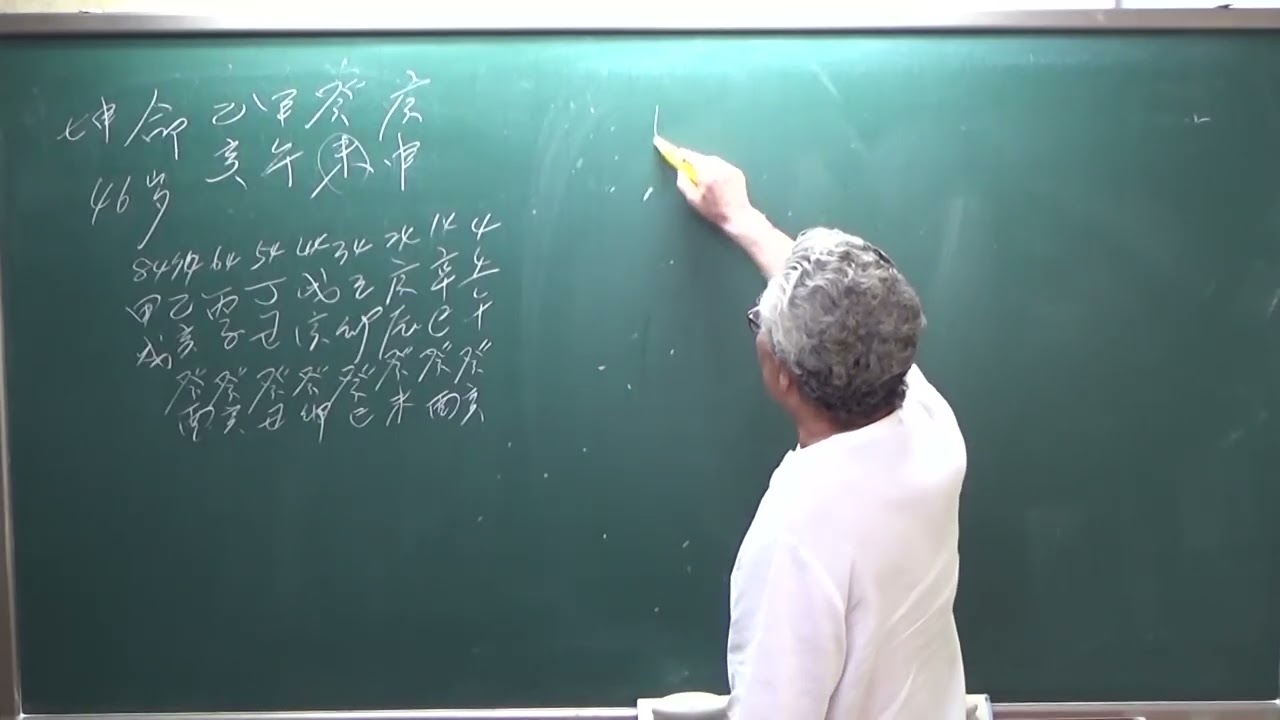 坤命 乙 甲 癸 庚
亥 午 未 申
46岁
84 74 64 54 44 34 24 14 4
甲 乙 丙 丁 戊 己 庚 辛 壬
戌 亥 子 丑 寅 卯 辰 巳 午
癸 癸 癸 癸 癸 癸 癸 癸
酉 亥 丑 卯 巳 未 酉 亥